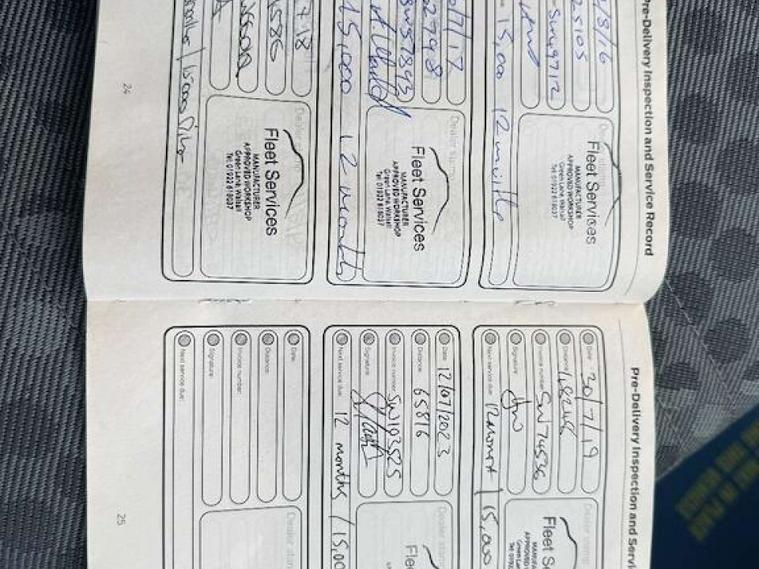 Pre-Delivery Inspection and Service Record
/8/16
25105
SW49712
15,00 12 months
Fleet Services
MANUFACTURER
APPROVED WORKSHOP
Green Lane, Walsall
Tel: 01922 618037
/7/17
32798
SW57893
15,000 12 months
Dealer stamp
Fleet Services
MANUFACTURER
APPROVED WORKSHOP
Green Lane, Walsall
Tel: 01922 618037
7.18
586
months / 15000 miles
Dealer
Fleet Services
MANUFACTURER
APPROVED WORKSHOP
Green Lane, Walsall
Tel: 01922 618037
24
Pre-Delivery Inspection and Servi
Date: 30/7/19
Distance:
Invoice number: SW74536
Signature:
Next service due: 12 Month / 15,000
Dealer stamp
Fleet S
MANUFA
APPROVED
Green Lane
Tel: 0192
Date: 12/07/2023
Distance: 65816
Invoice number: SW103525
Signature:
Next service due: 12 months / 15,00
Dealer stam
Fle
Date:
Distance:
Invoice number:
Signature:
Next service due:
Dealer stam
25